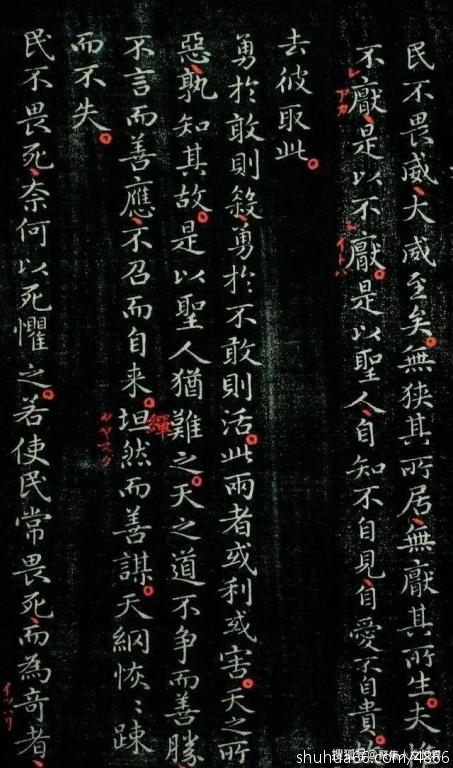 民不畏威、大威至矣。無狹其所居、無厭其所生。夫
不厭、是以不厭。是以聖人、自知不自見、自愛不自貴、
アカ
イトハ
去彼取此。
勇於敢則殺、勇於不敢則活。此兩者或利或害。天之所
惡、孰知其故。是以聖人猶難之。天之道不争而善勝、
不言而善應、不召而自来。坦然而善謀。天網恢〻踈
繟
而不失。
民不畏死、奈何以死懼之。若使民常畏死、而為奇者、
shuhua66.com/4866